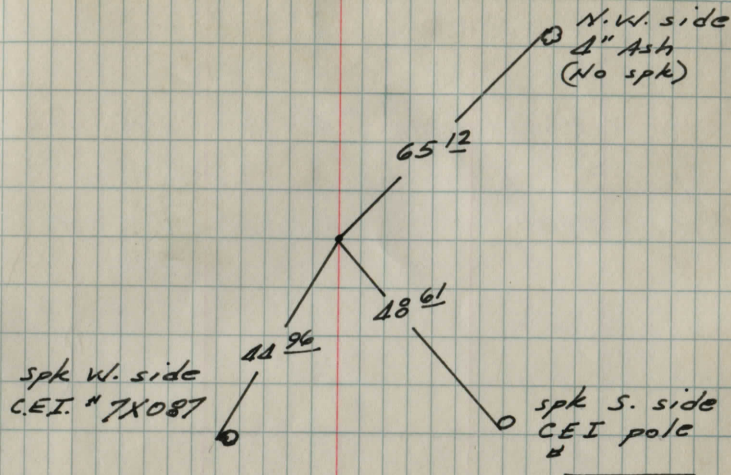 N.W. side
4" Ash
(No spk)
65 12
48 61
44 96
spk W. side
C.E.I. # 7X087
spk S. side
CEI pole
#